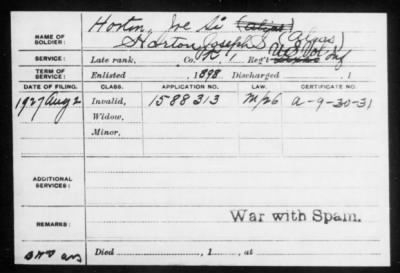 NAME OF SOLDIER: Horton, Joe Si (alias)
Horton, Joseph S (alias)
SERVICE: Late rank, Co. Reg't U S Vol Inf
TERM OF SERVICE: Enlisted 1898 Discharged , 1
DATE OF FILING. CLASS. APPLICATION NO. LAW. CERTIFICATE NO.
1927 Aug 2 Invalid, 1588313 a-9-30-31
Widow,
Minor,
ADDITIONAL SERVICES:
War with Spain.
REMARKS:
Died , 1 , at